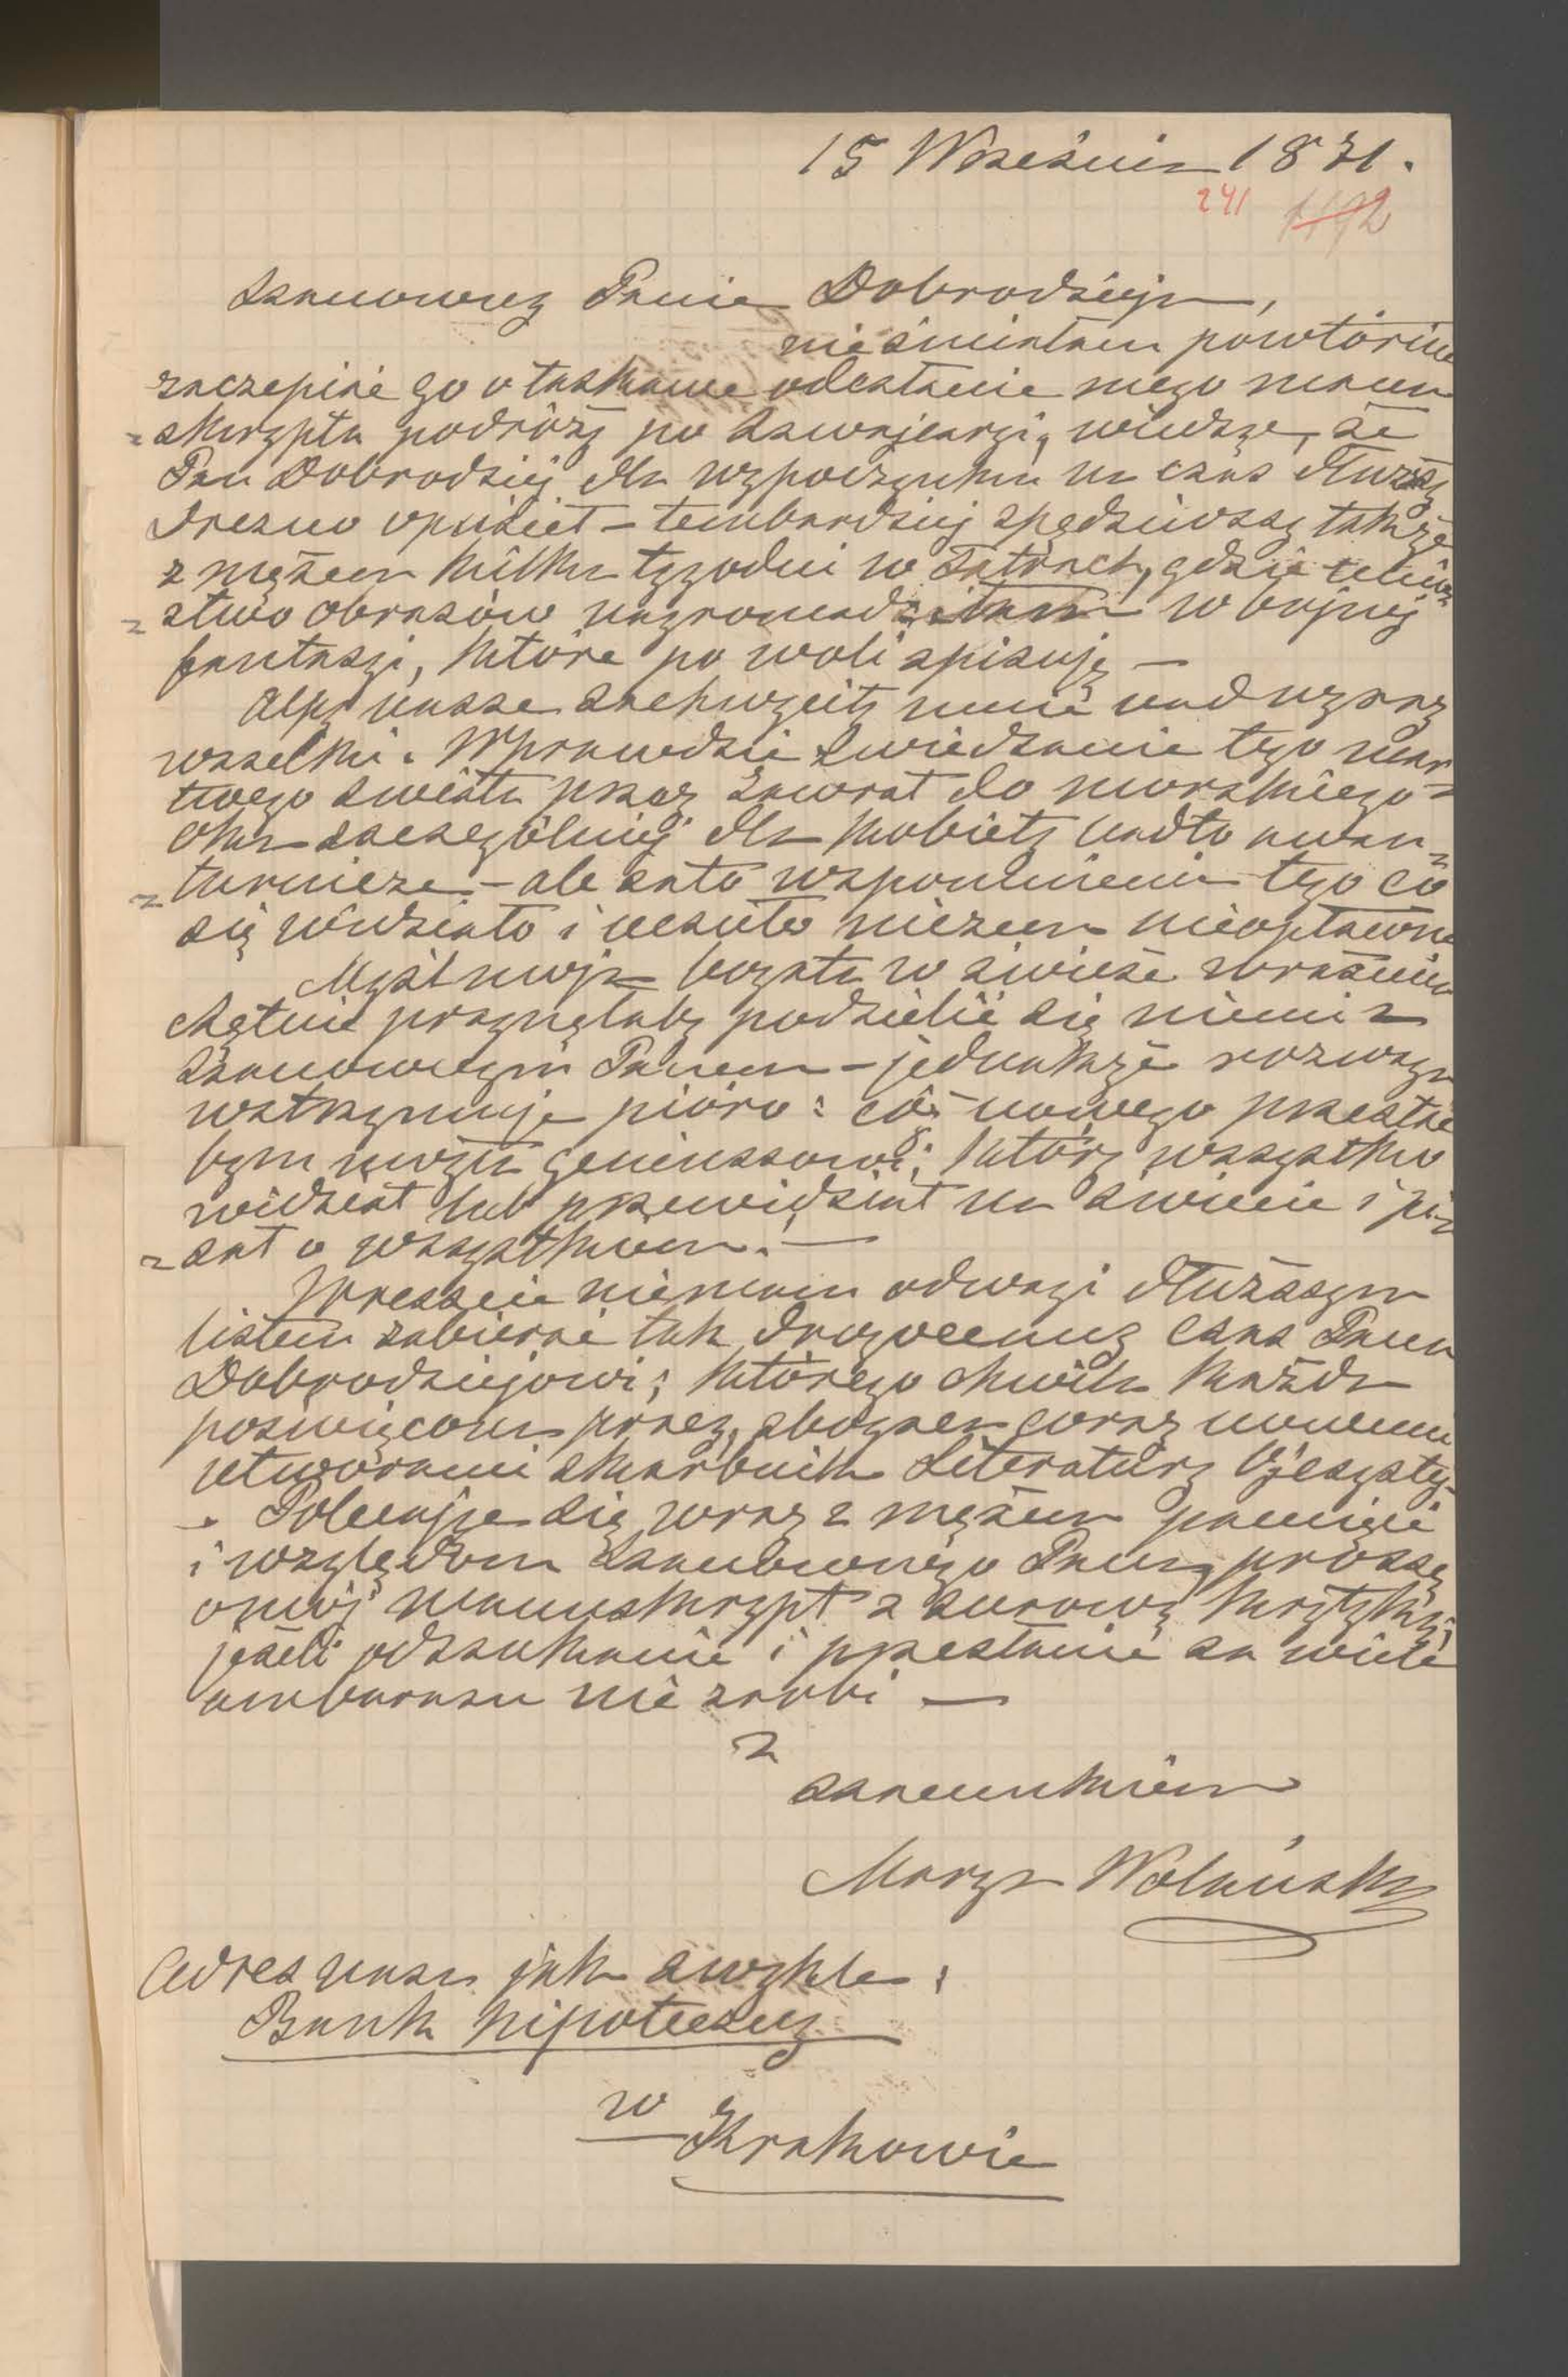 15 Września 1871.
241 1192
Szanowny Panie Dobrodzieju,
nie śmiałam powtórnie
zaczepiać go o łaskawe odesłanie mego manu
=skryptu podróży po Szwajcaryi, wiedząc, że
Pan Dobrodziej dla wypoczynku na czas dłuższy
Drezno opuścił – tembardziej spędziwszy także
z mężem kilka tygodni w Tatrach, gdzie
=stwo obrazów nagromadziłam w bujnej
fantazyi, które po woli spisuję –
Alpy nasze zachwyciły mnie nad wyraz
wszelki. Wprawdzie zwiedzanie tego mar
twego świata przez Zawrat do morskiego=
oka szczególniej dla kobiety nadto awan=
=turnicze – ale zato wspomnienie tego co
się widziało i czuło niczem nieopłacone
Myśl moja bogata w świeże wrażenia
chętnie pragnęłaby podzielić się niemi z
Szanownym Panem – jednakże rozwaga
wstrzymuje pióro: cóż nowego przesłać
bym mogła geniuszowi, który wszystko
widział lub przewidział na świecie i pi=
=sał o wszystkiem! –
Wreszcie nie mam odwagi dłuższym
listem zabierać tak drogocenny czas Panu
Dobrodziejowi; którego chwila każda
poświęcona pracy, zbogaca coraz nowemi
utworami skarbnik Literatury Ojczystej
– Polecając się wraz z mężem pamięci
i względom Szanownego Pana, proszę
o mój manuskrypt z surową krytyką,
jeżeli odszukanie i przesłanie za wiele
ambarasu nie zrobi –
Z
szacunkiem
Marya Wolańska
Adres nasz jak zwykle:
Bank hipoteczny
w
Krakowie